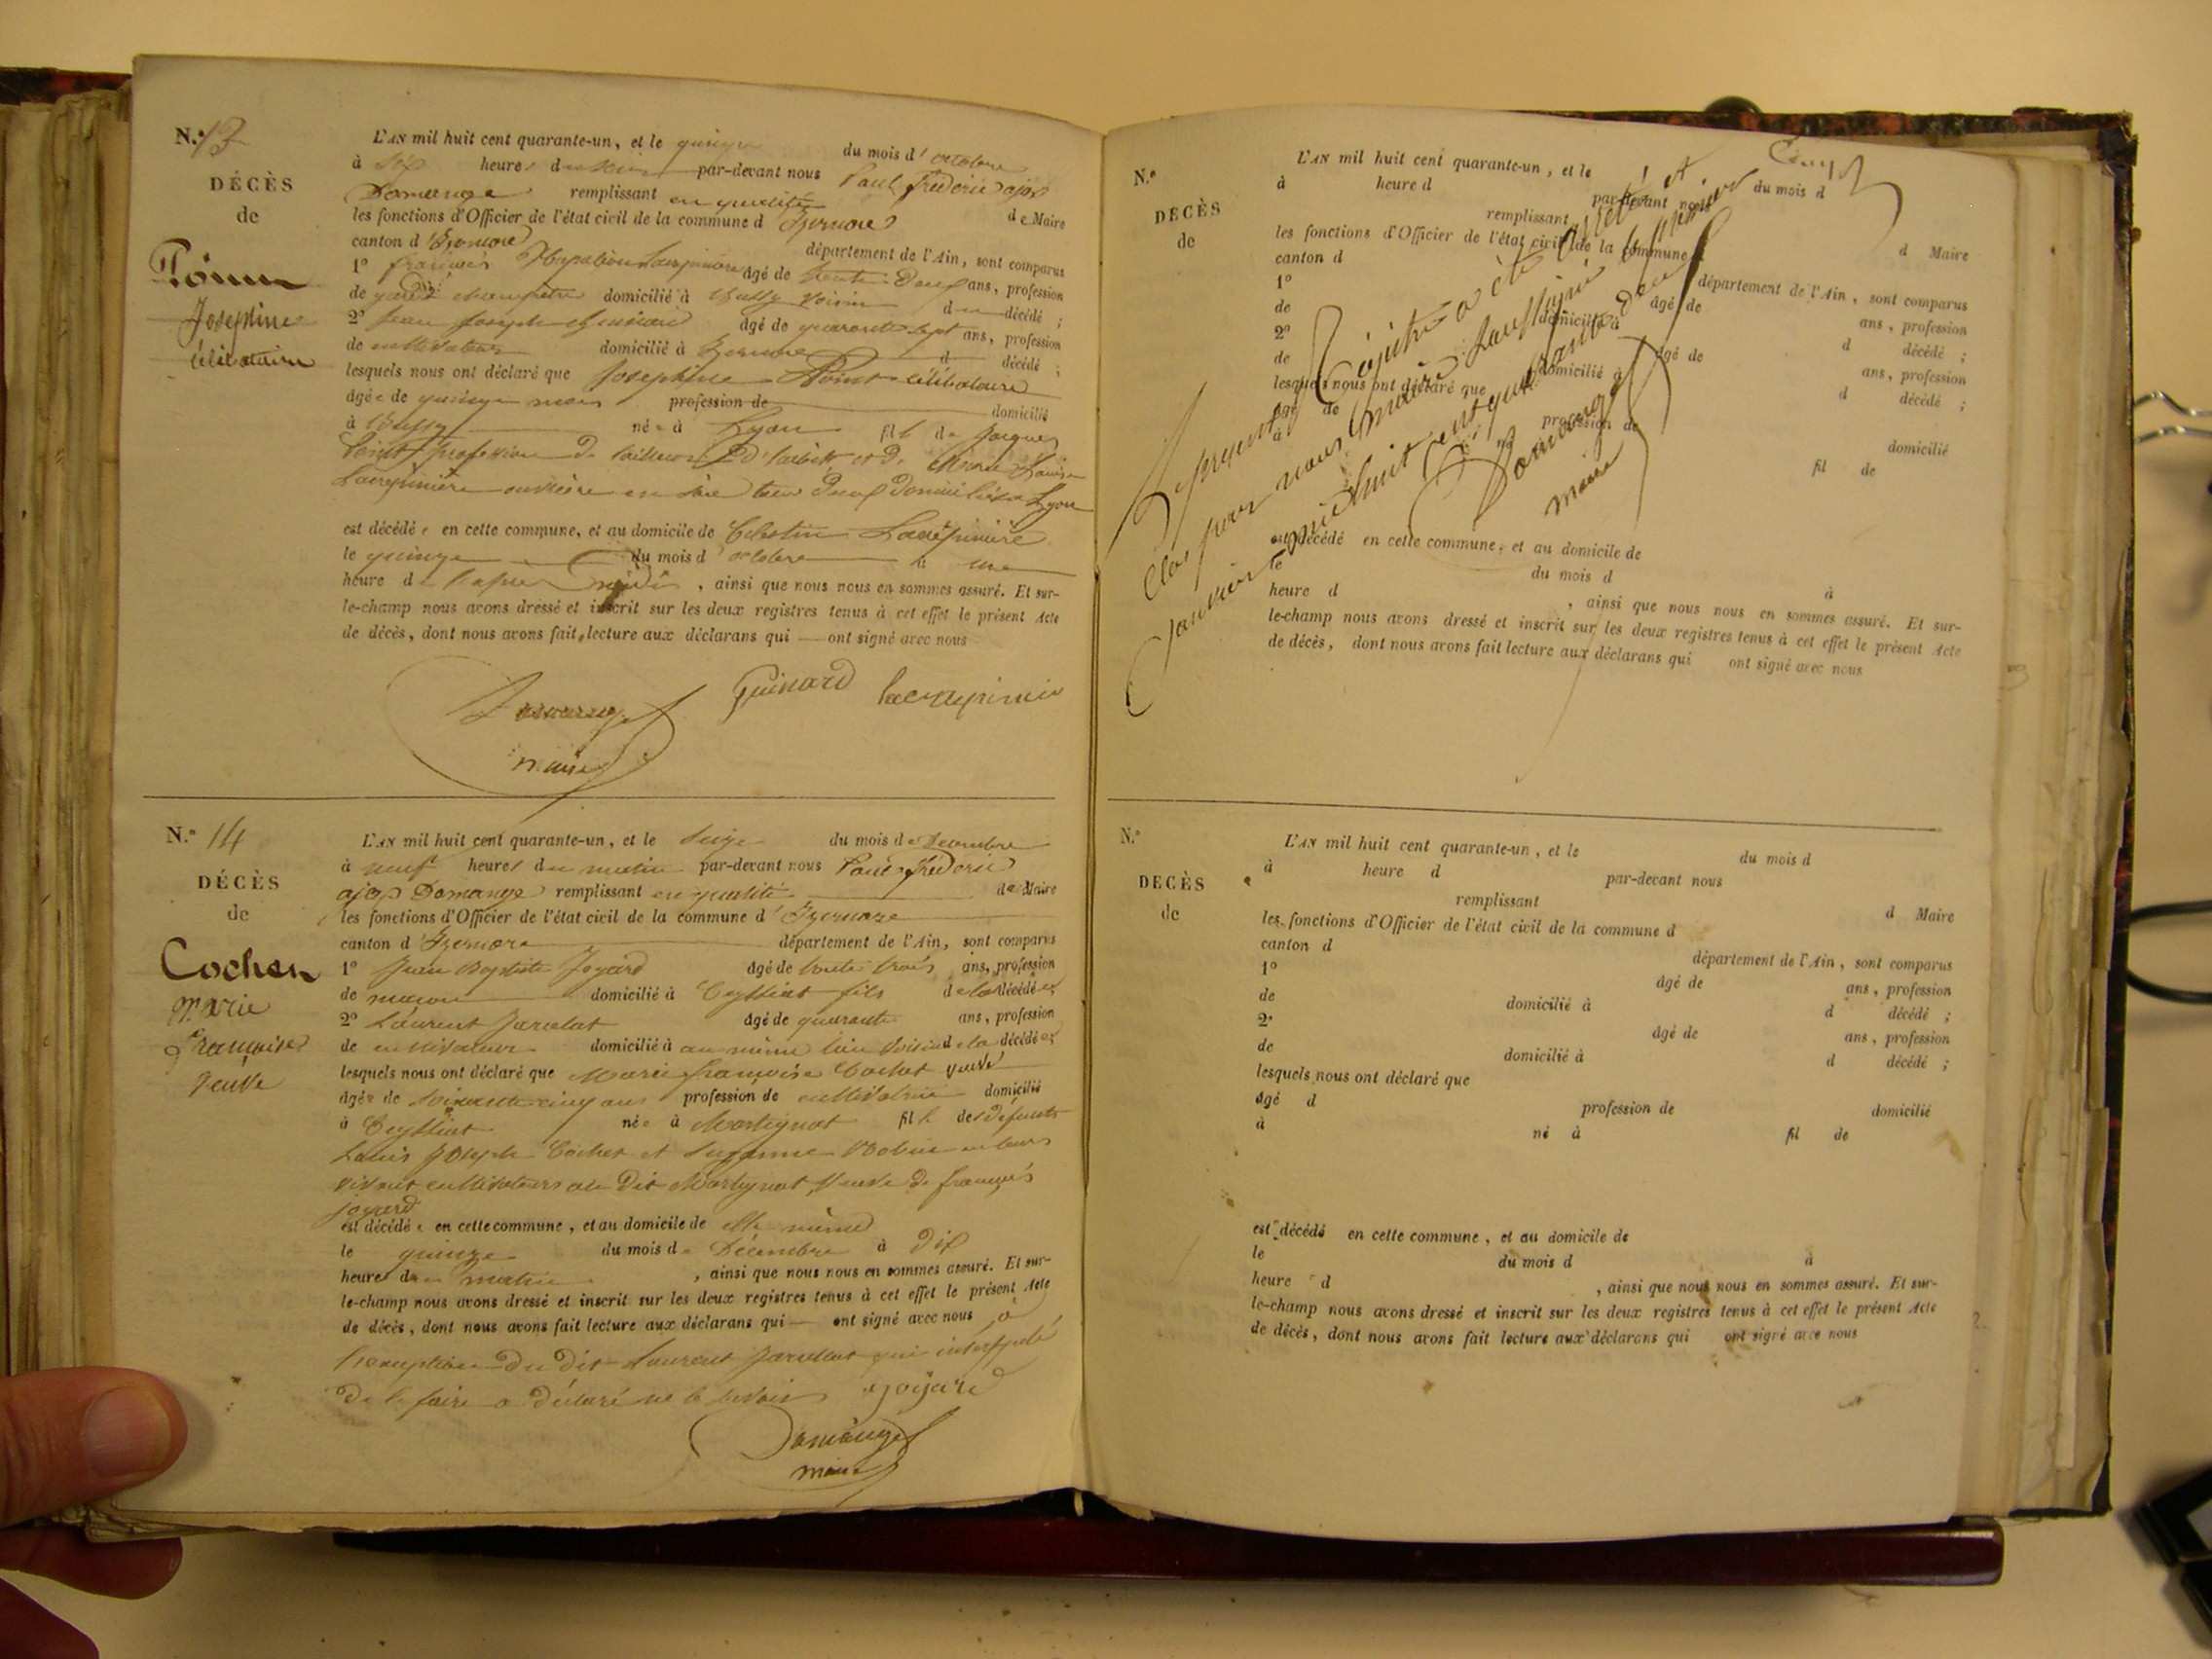 N.º 13
DÉCÈS
de
Josephine
célibataire
L'AN mil huit cent quarante-un, et le quinze du mois d'octobre
à six heures du soir par-devant nous Paul frédéric ajax
Domange remplissant en qualité de Maire
les fonctions d'Officier de l'état civil de la commune d'Izernore
canton d'Izernore département de l'Ain, sont comparus
1º françois âgé de trente Deux ans, profession
de garde champêtre domicilié à Bussy voisin du décédé ;
2º jean joseph Guinard âgé de quarante sept ans, profession
de cultivateur domicilié à Izernore d décédé ;
lesquels nous ont déclaré que Josephine Point célibataire
âgée de quinze mois profession de domicilié
à Bussy née à Lyon fille de Jacques
Point profession De tailleur D'habit et De Marie Louise
Lacrepinière ouvrière en soie tous Deux Domiciliés a Lyon
est décédée en cette commune, et au domicile de Célestin Lacrépinière
le quinze du mois d'octobre à une
heure de l'après midi, ainsi que nous nous en sommes assuré. Et sur-
le-champ nous avons dressé et inscrit sur les deux registres tenus à cet effet le présent Acte
de décès, dont nous avons fait lecture aux déclarans qui ont signé avec nous
Guinard lacrepinier
Domange
maire
N.º 14
DÉCÈS
de
Cochet
Marie
françoise
veuve
L'AN mil huit cent quarante-un, et le seize du mois de Décembre
à neuf heures du matin par-devant nous Paul frédéric
ajax Domange remplissant en qualité de Maire
les fonctions d'Officier de l'état civil de la commune d'Izernore
canton d'Izernore département de l'Ain, sont comparus
1º Jean Baptiste Joyard âgé de trente trois ans, profession
de maçon domicilié à Ceyssiat fils de la décédée ;
2º Laurent Javellot âgé de quarante ans, profession
de cultivateur domicilié à au même lieu voisin de la décédée ;
lesquels nous ont déclaré que Marie françoise Cochet veuve
âgée de soixante cinq ans profession de cultivatrice domicilié
à Ceyssiat née à Martignat fille des défunts
Louis Joseph Cochet et Suzanne en leurs
vivant cultivateurs au Dit Martignat, Veuve De françois
joyard
est décédée en cette commune, et au domicile de elle même
le quinze du mois de Décembre à Dix
heures du matin, ainsi que nous nous en sommes assuré. Et sur-
le-champ nous avons dressé et inscrit sur les deux registres tenus à cet effet le présent Acte
de décès, dont nous avons fait lecture aux déclarans qui ont signé avec nous à
l'exception Du Dit Laurent Javellot qui interpellé
De le faire a Déclaré ne le savoir joyard
Domange
maire
N.º
DÉCÈS
de
L'AN mil huit cent quarante-un, et le du mois d
à heure d par-devant nous
remplissant d Maire
les fonctions d'Officier de l'état civil de la commune d
canton d département de l'Ain, sont comparus
1º âgé de ans, profession
de domicilié à d décédé ;
2º âgé de ans, profession
de domicilié à d décédé ;
lesquels nous ont déclaré que
âgé de profession de domicilié
à né à fil de
Le présent Régistre a été arrêté et
clos par nous maire Soussigné le premier
janvier mil huit cent quarante deux
Domange
maire
est décédé en cette commune, et au domicile de
le du mois d à
heure d , ainsi que nous nous en sommes assuré. Et sur-
le-champ nous avons dressé et inscrit sur les deux registres tenus à cet effet le présent Acte
de décès, dont nous avons fait lecture aux déclarans qui ont signé avec nous
N.º
DÉCÈS
de
L'AN mil huit cent quarante-un, et le du mois d
à heure d par-devant nous
remplissant d Maire
les fonctions d'Officier de l'état civil de la commune d
canton d département de l'Ain, sont comparus
1º âgé de ans, profession
de domicilié à d décédé ;
2º âgé de ans, profession
de domicilié à d décédé ;
lesquels nous ont déclaré que
âgé d profession de domicilié
à né à fil de
est décédé en cette commune, et au domicile de
le du mois d à
heure d , ainsi que nous nous en sommes assuré. Et sur-
le-champ nous avons dressé et inscrit sur les deux registres tenus à cet effet le présent Acte
de décès, dont nous avons fait lecture aux déclarans qui ont signé avec nous